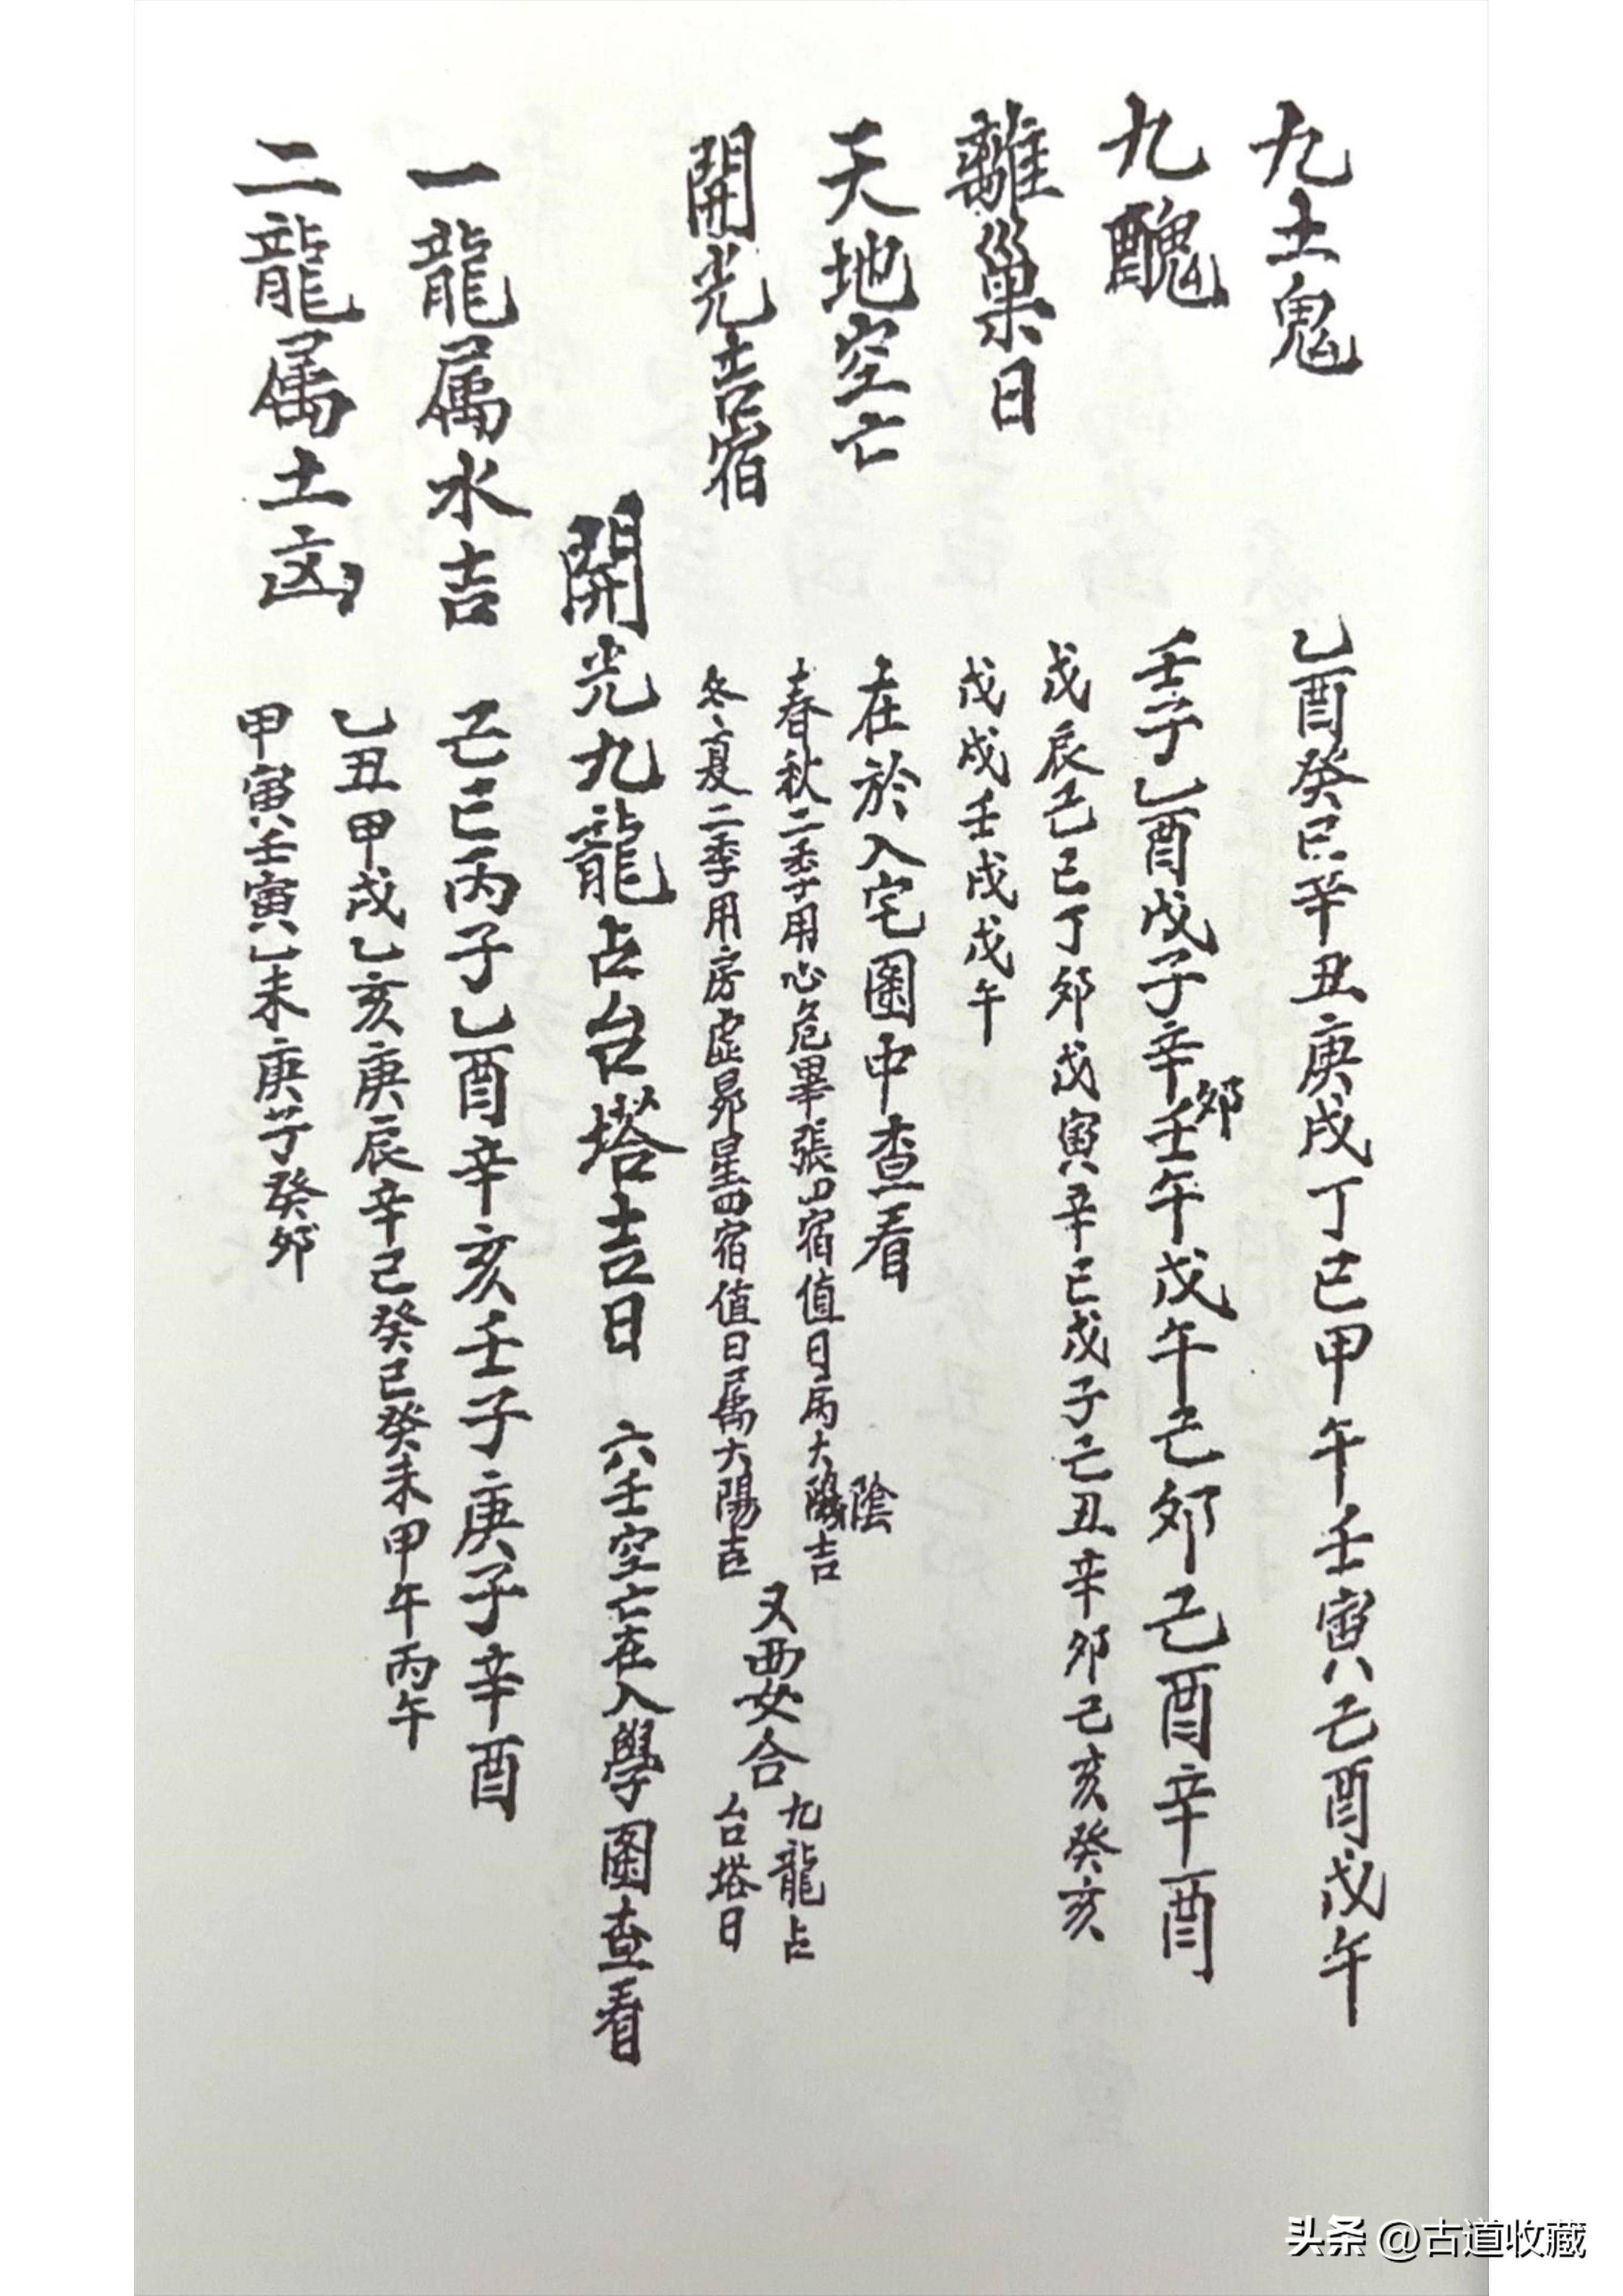 九土鬼 乙酉癸巳辛丑庚戌丁巳甲午壬寅己酉戊午
九醜 壬子乙酉戊子辛卯壬午戊午己卯己酉辛酉
離巢日 戊辰己巳丁卯戊寅辛巳戊子己丑辛卯己亥癸亥
戊戌壬戌戊午
天地空亡 在於入宅圖中查看
開光吉宿 春秋二季用心危畢張四宿值日属太陰吉
冬夏二季用房虛昴星四宿值日属太陽吉
又要合九龍占台塔日
開光九龍占台塔吉日 六壬空亡在入學圖查看
一龍属水吉 己巳丙子乙酉辛亥壬子庚子辛酉
二龍属土凶 乙丑甲戌乙亥庚辰辛巳癸巳癸未甲午丙午
甲寅壬寅乙未庚子癸卯
头条 @古道收藏